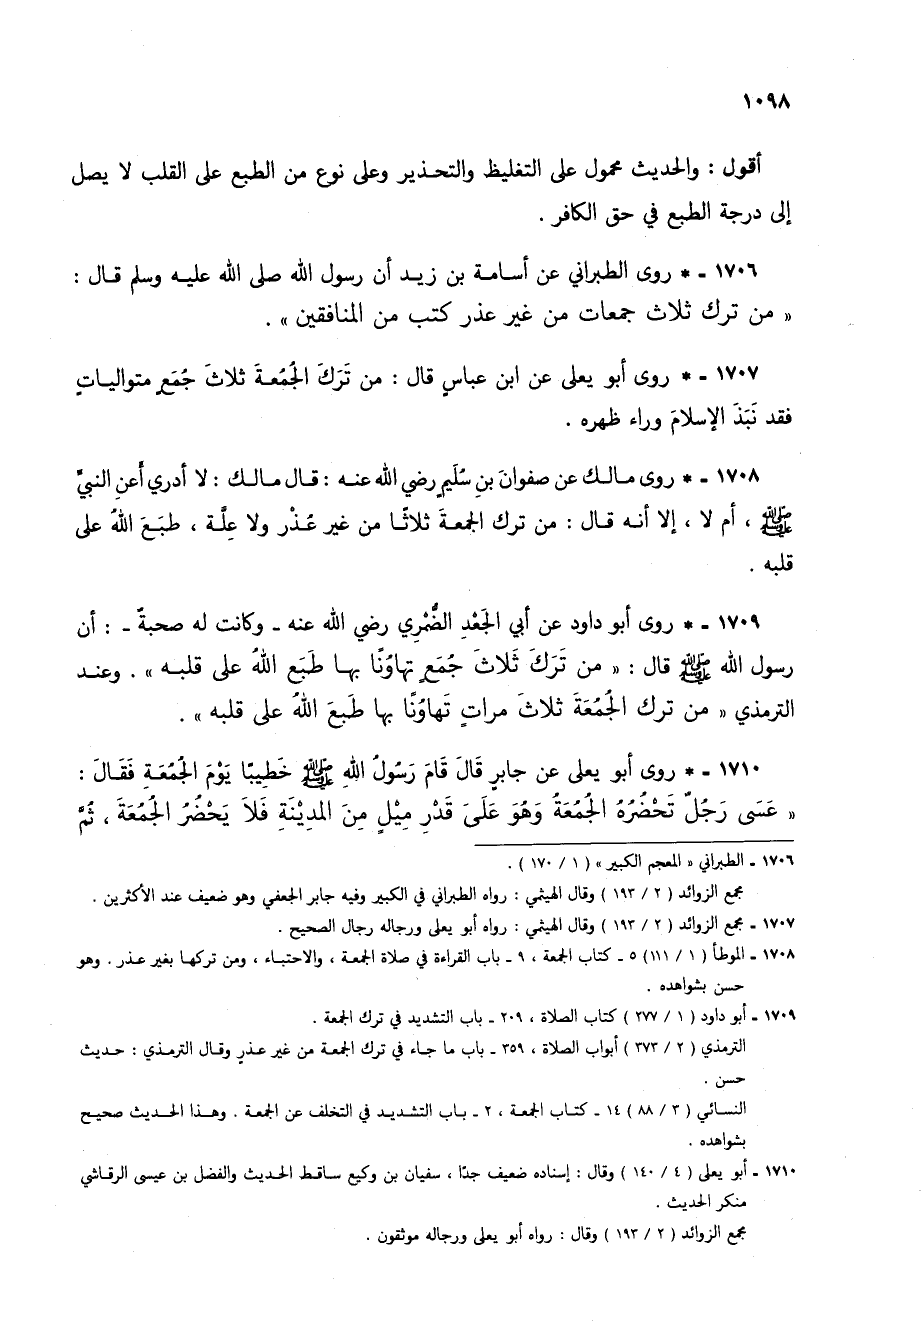 ١٠٩٨
أقول : والحديث محمول على التغليظ والتحذير وعلى نوع من الطبع على القلب لا يصل
إلى درجة الطبع في حق الكافر .
١٧٠٦ - * روى الطبراني عن أسامة بن زيد أن رسول الله صلى الله عليه وسلم قال :
« من ترك ثلاث جمعات من غير عذر كتب من المنافقين » .
١٧٠٧ - * روى أبو يعلى عن ابن عباسٍ قال : من تَرَكَ الجُمُعةَ ثلاثَ جُمَعٍ متوالياتٍ
فقد نَبَذَ الإسلامَ وراء ظهره .
١٧٠٨ - * روى مالك عن صفوانَ بنِ سُلَيمٍ رضي الله عنه : قال مالك : لا أدري أَعنِ النبيِّ
ﷺ ، أم لا ، إلا أنه قال : من ترك الجمعةَ ثلاثًا من غير عُذْر ولا عِلَّة ، طبَعَ اللهُ على
قلبه .
١٧٠٩ - * روى أبو داود عن أبي الجَعْدِ الضُّمْري رضي الله عنه - وكانت له صحبةٌ - : أن
رسول الله ﷺ قال : « من تَرَكَ ثَلاثَ جُمَعٍ تهاوُنًا بها طَبَع اللهُ على قلبه » . وعند
الترمذي « من ترك الجُمُعَةَ ثلاثَ مراتٍ تَهاوُنًا بها طَبعَ اللهُ على قلبه » .
١٧١٠ - * روى أبو يعلى عن جابرٍ قَالَ قَامَ رَسُولُ اللهِ ﷺ خَطِيبًا يَوْمَ الجُمُعَةِ فَقَالَ :
« عَسَى رَجُلٌ تَحْضُرُهُ الجُمُعَةُ وَهُوَ عَلَىَ قَدْرِ مِيْلٍ مِنَ المدِيْنَةِ فَلاَ يَحْضُرُ الجُمُعَةَ ، ثُمَّ
١٧٠٦ - الطبراني « المعجم الكبير » ( ١ / ١٧٠ ) .
مجمع الزوائد ( ٢ / ١٩٣ ) وقال الهيثمي : رواه الطبراني في الكبير وفيه جابر الجعفي وهو ضعيف عند الأكثرين .
١٧٠٧ - مجمع الزوائد ( ٢ / ١٩٣ ) وقال الهيثمي : رواه أبو يعلى ورجاله رجال الصحيح .
١٧٠٨ - الموطأ ( ١ / ١١١) ٥ - كتاب الجمعة ، ٩ - باب القراءة في صلاة الجمعة ، والاحتباء ، ومن تركها بغير عذر . وهو
حسن بشواهده .
١٧٠٩ - أبو داود ( ١ / ٢٧٧ ) كتاب الصلاة ، ٢٠٩ - باب التشديد في ترك الجمعة .
الترمذي ( ٢ / ٣٧٣ ) أبواب الصلاة ، ٣٥٩ - باب ما جاء في ترك الجمعة من غير عذرٍ وقال الترمذي : حديث
حسن .
النسائي ( ٣ / ٨٨ ) ١٤ - كتاب الجمعة ، ٢ - باب التشديد في التخلف عن الجمعة . وهذا الحديث صحيح
بشواهده .
١٧١٠ - أبو يعلى ( ٤ / ١٤٠ ) وقال : إسناده ضعيف جدًا ، سفيان بن وكيع ساقط الحديث والفضل بن عيسى الرقاشي
منكر الحديث .
مجمع الزوائد ( ٢ / ١٩٣ ) وقال : رواه أبو يعلى ورجاله موثقون .